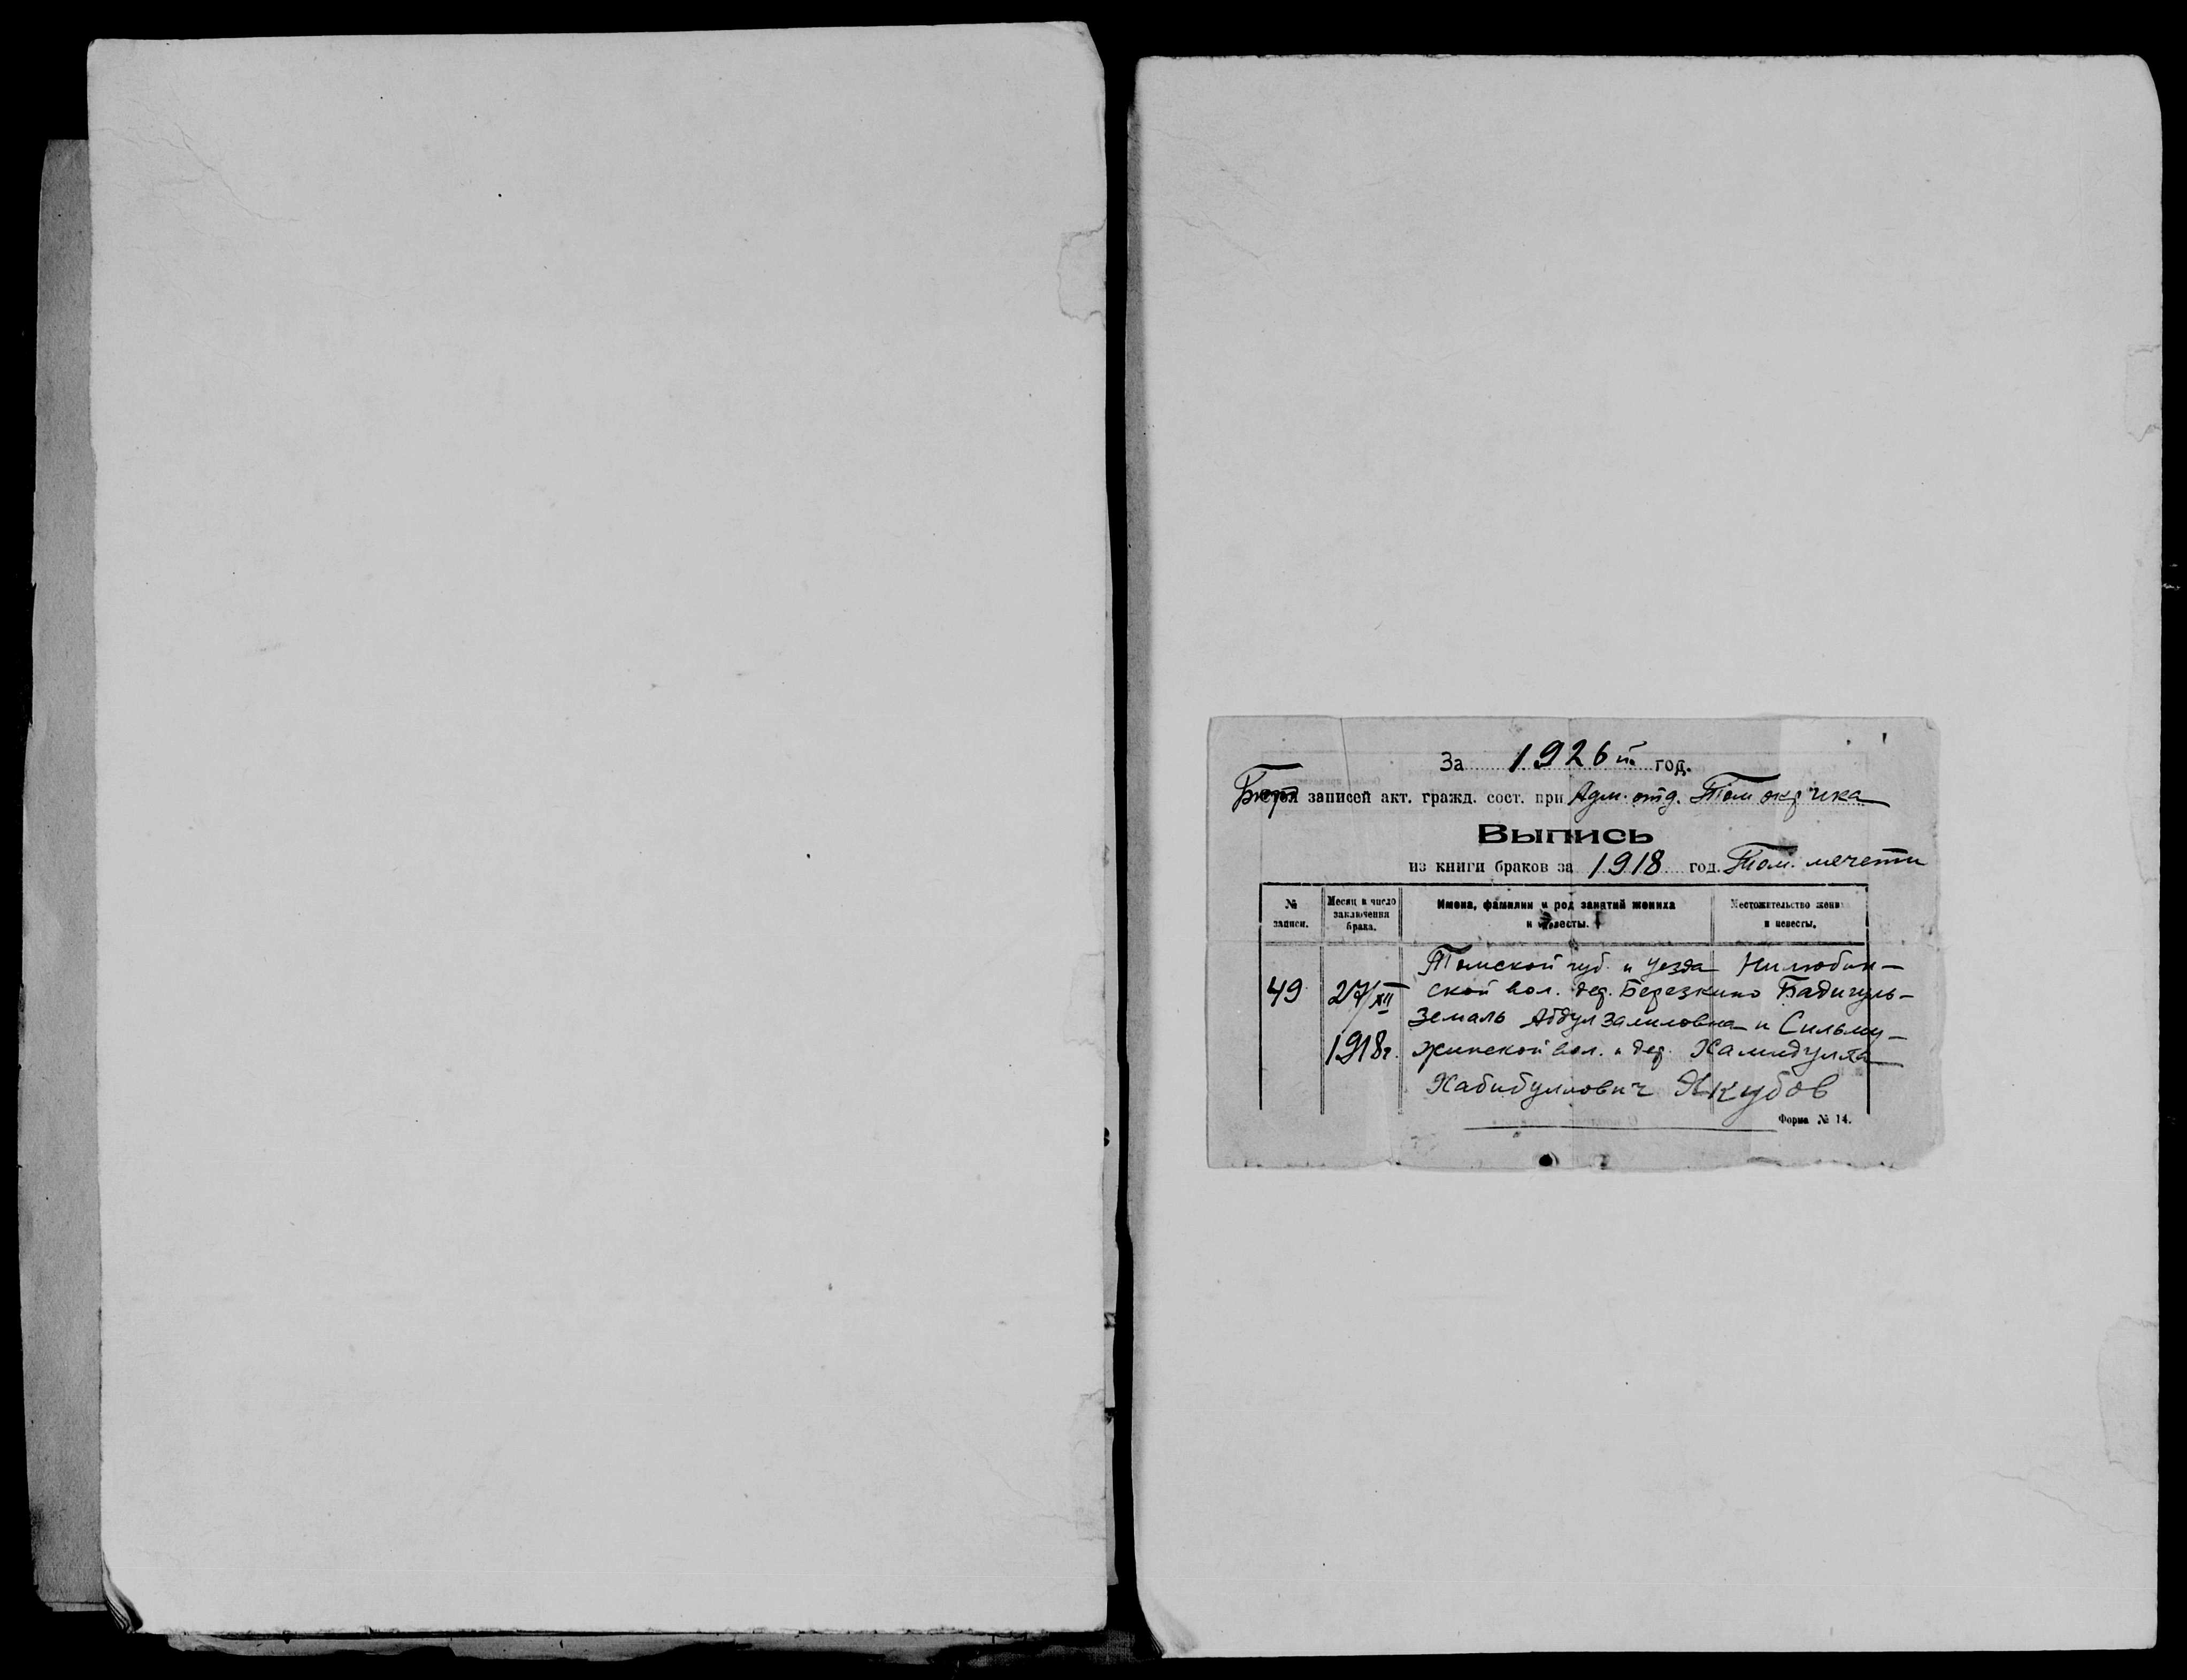 За 1926 й год.
Бюро записей акт. гражд. сост. при Адм. отд. Том окр ика
Выпись
из книги браков за 1918 год. Том. мечети
№ записи.
Месяц и число заключения брака.
Имена, фамилии и род занятий жениха и невесты.
Местожительство жениха и невесты.
Томской губ. и уезда Нилюбин-
49 27/XII ской вол. дер. Березкино Бадигуль-
Земаль Абдул Залиловна и Сильми-
1918 г. жинской вол. и дер. Хамидулла
Хабибуллович Якубов
Форма № 14.